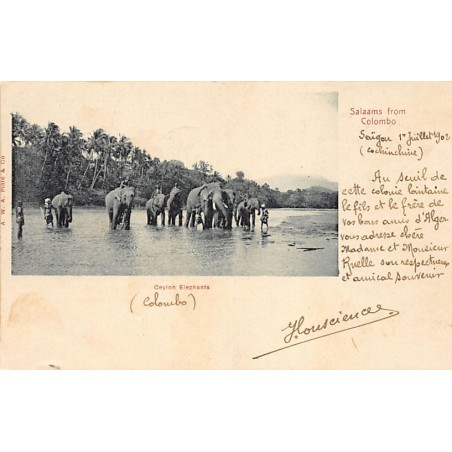 Salaams from
Colombo
Saïgon 1er Juillet 1902
(Cochinchine)
Au seuil de
cette colonie lointaine
le fils et le frère de
vos bons amis d'Alger
vous adresse chère
Madame et Monsieur
Ruelle son respectueux
et amical souvenir
A. W. A. Plâté & Co
Ceylon Elephants
(Colombo)